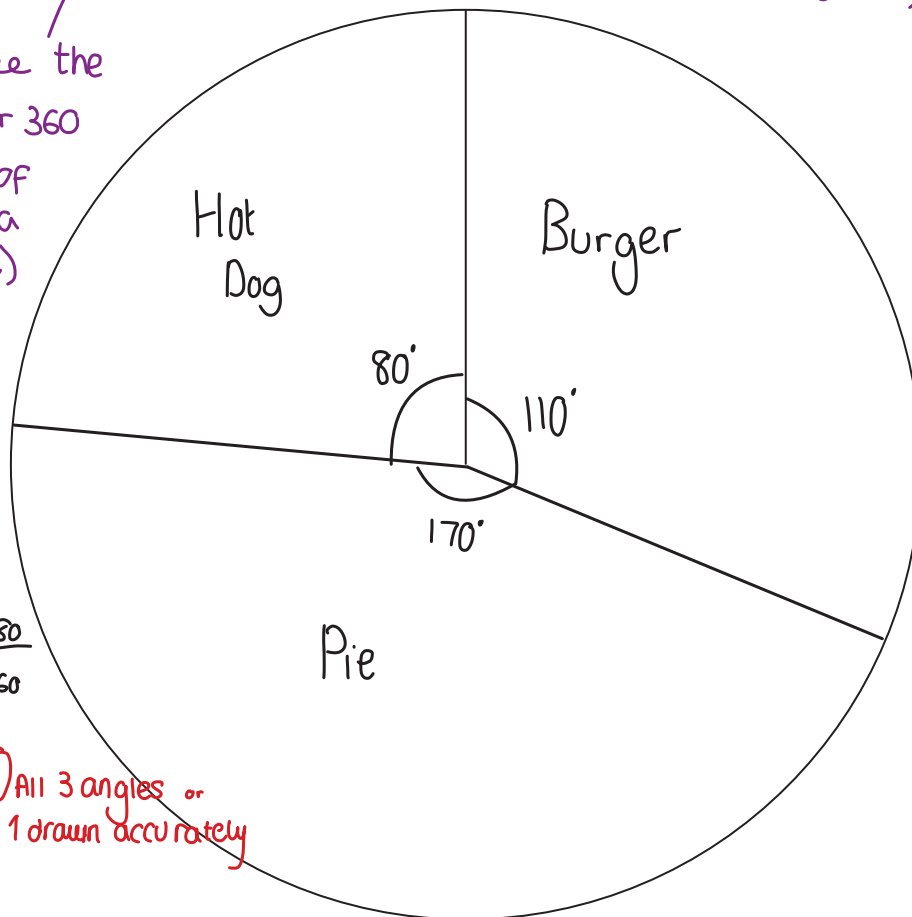 the
360
of
a
Hot
Dog
Burger
80°
110°
170°
Pie
80
60
All 3 angles or
1 drawn accurately